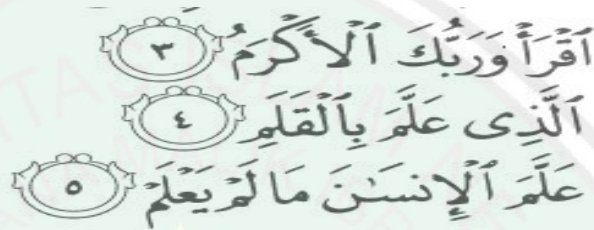 ٱقْرَأْ وَرَبُّكَ ٱلْأَكْرَمُ ٣
ٱلَّذِى عَلَّمَ بِٱلْقَلَمِ ٤
عَلَّمَ ٱلْإِنسَـٰنَ مَا لَمْ يَعْلَمْ ٥